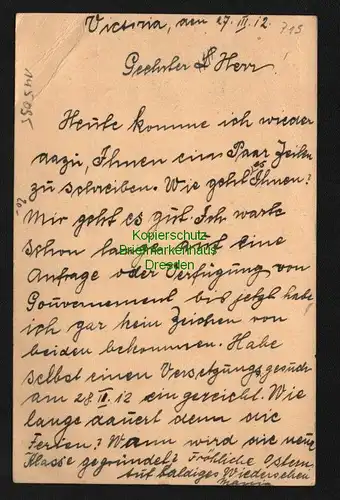 Victoria, den 27. III. 12.
715
145095
Geehrter Herr
Heute komme ich wieder
dazu, Ihnen ein Paar Zeilen
zu schreiben. Wie geht es Ihnen?
20-
Mir geht es gut. Ich warte
schon lange auf eine
Anfrage oder Verfügung von
Gouvernement bis jetzt habe
ich gar kein Zeichen von
beiden bekommen. Habe
selbst einen Versetzungsgesuch
am 28. II. 12 eingereicht. Wie
lange dauert denn die
Ferien? Wann wird die neue
Klasse gegründet? Fröhliche Ostern
Auf baldiges Wiedersehen
Kopierschutz
Briefmarkenhaus
Dresden